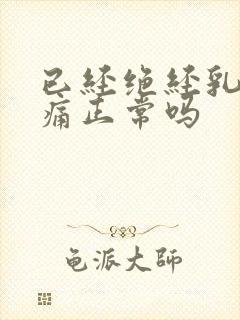 已经绝经乳
痛正常吗
龟派大师